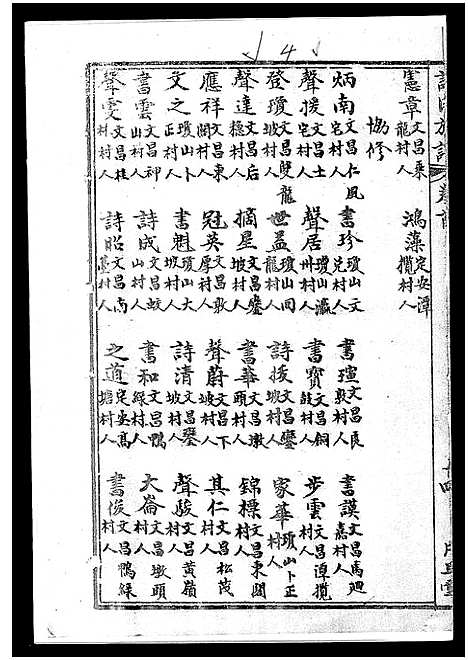 4
憲章 文昌東龍村人
鴻藻 定安潭攬村人
協修
炳南 文昌仁宅村人
書珍 瓊山文兒村人
書瑄 文昌良敦村人
書謨 文昌馬廻嘉村人
聲援 文昌土宅村人
聲居 瓊山瀛州村人
書寶 文昌銅鼓村人
步雲 文昌潭攬村人
登瓊 文昌雙龍坡村人
世益 瓊山同龍村人
詩援 文昌鏊坡村人
家華 瓊山卜正村人
聲達 文昌后橞村人
摘星 文昌鏊坡村人
書華 文昌墩頭村人
錦標 文昌東閣村人
應祥 文昌東閣村人
冠英 文昌敦厚村人
聲蔚 文昌下坡村人
其仁 文昌松茂村人
文之 瓊山卜正村人
書魁 瓊山大坡村人
詩清 文昌鏊坡村人
聲駿 文昌黃嶺村人
書雲 文昌神山村人
詩成 文昌蛟山村人
書和 文昌鴨綠村人
大崙 文昌墩頭村人
聲雯 文昌桂林村人
詩昭 文昌南薹村人
之道 定安高塘村人
書俊 文昌鴨綠村人